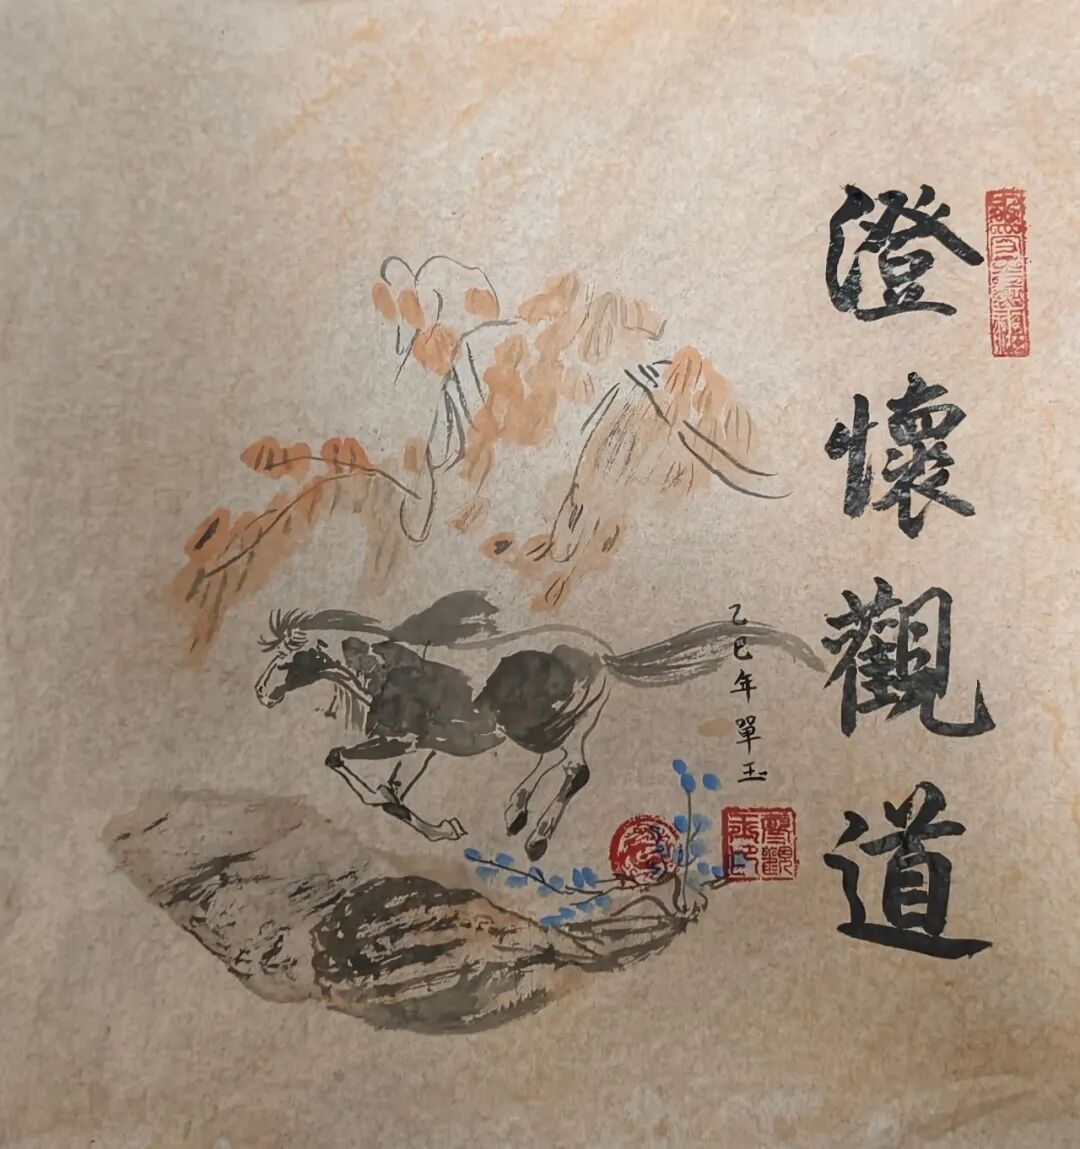 澄懷觀道
乙巳年單玉